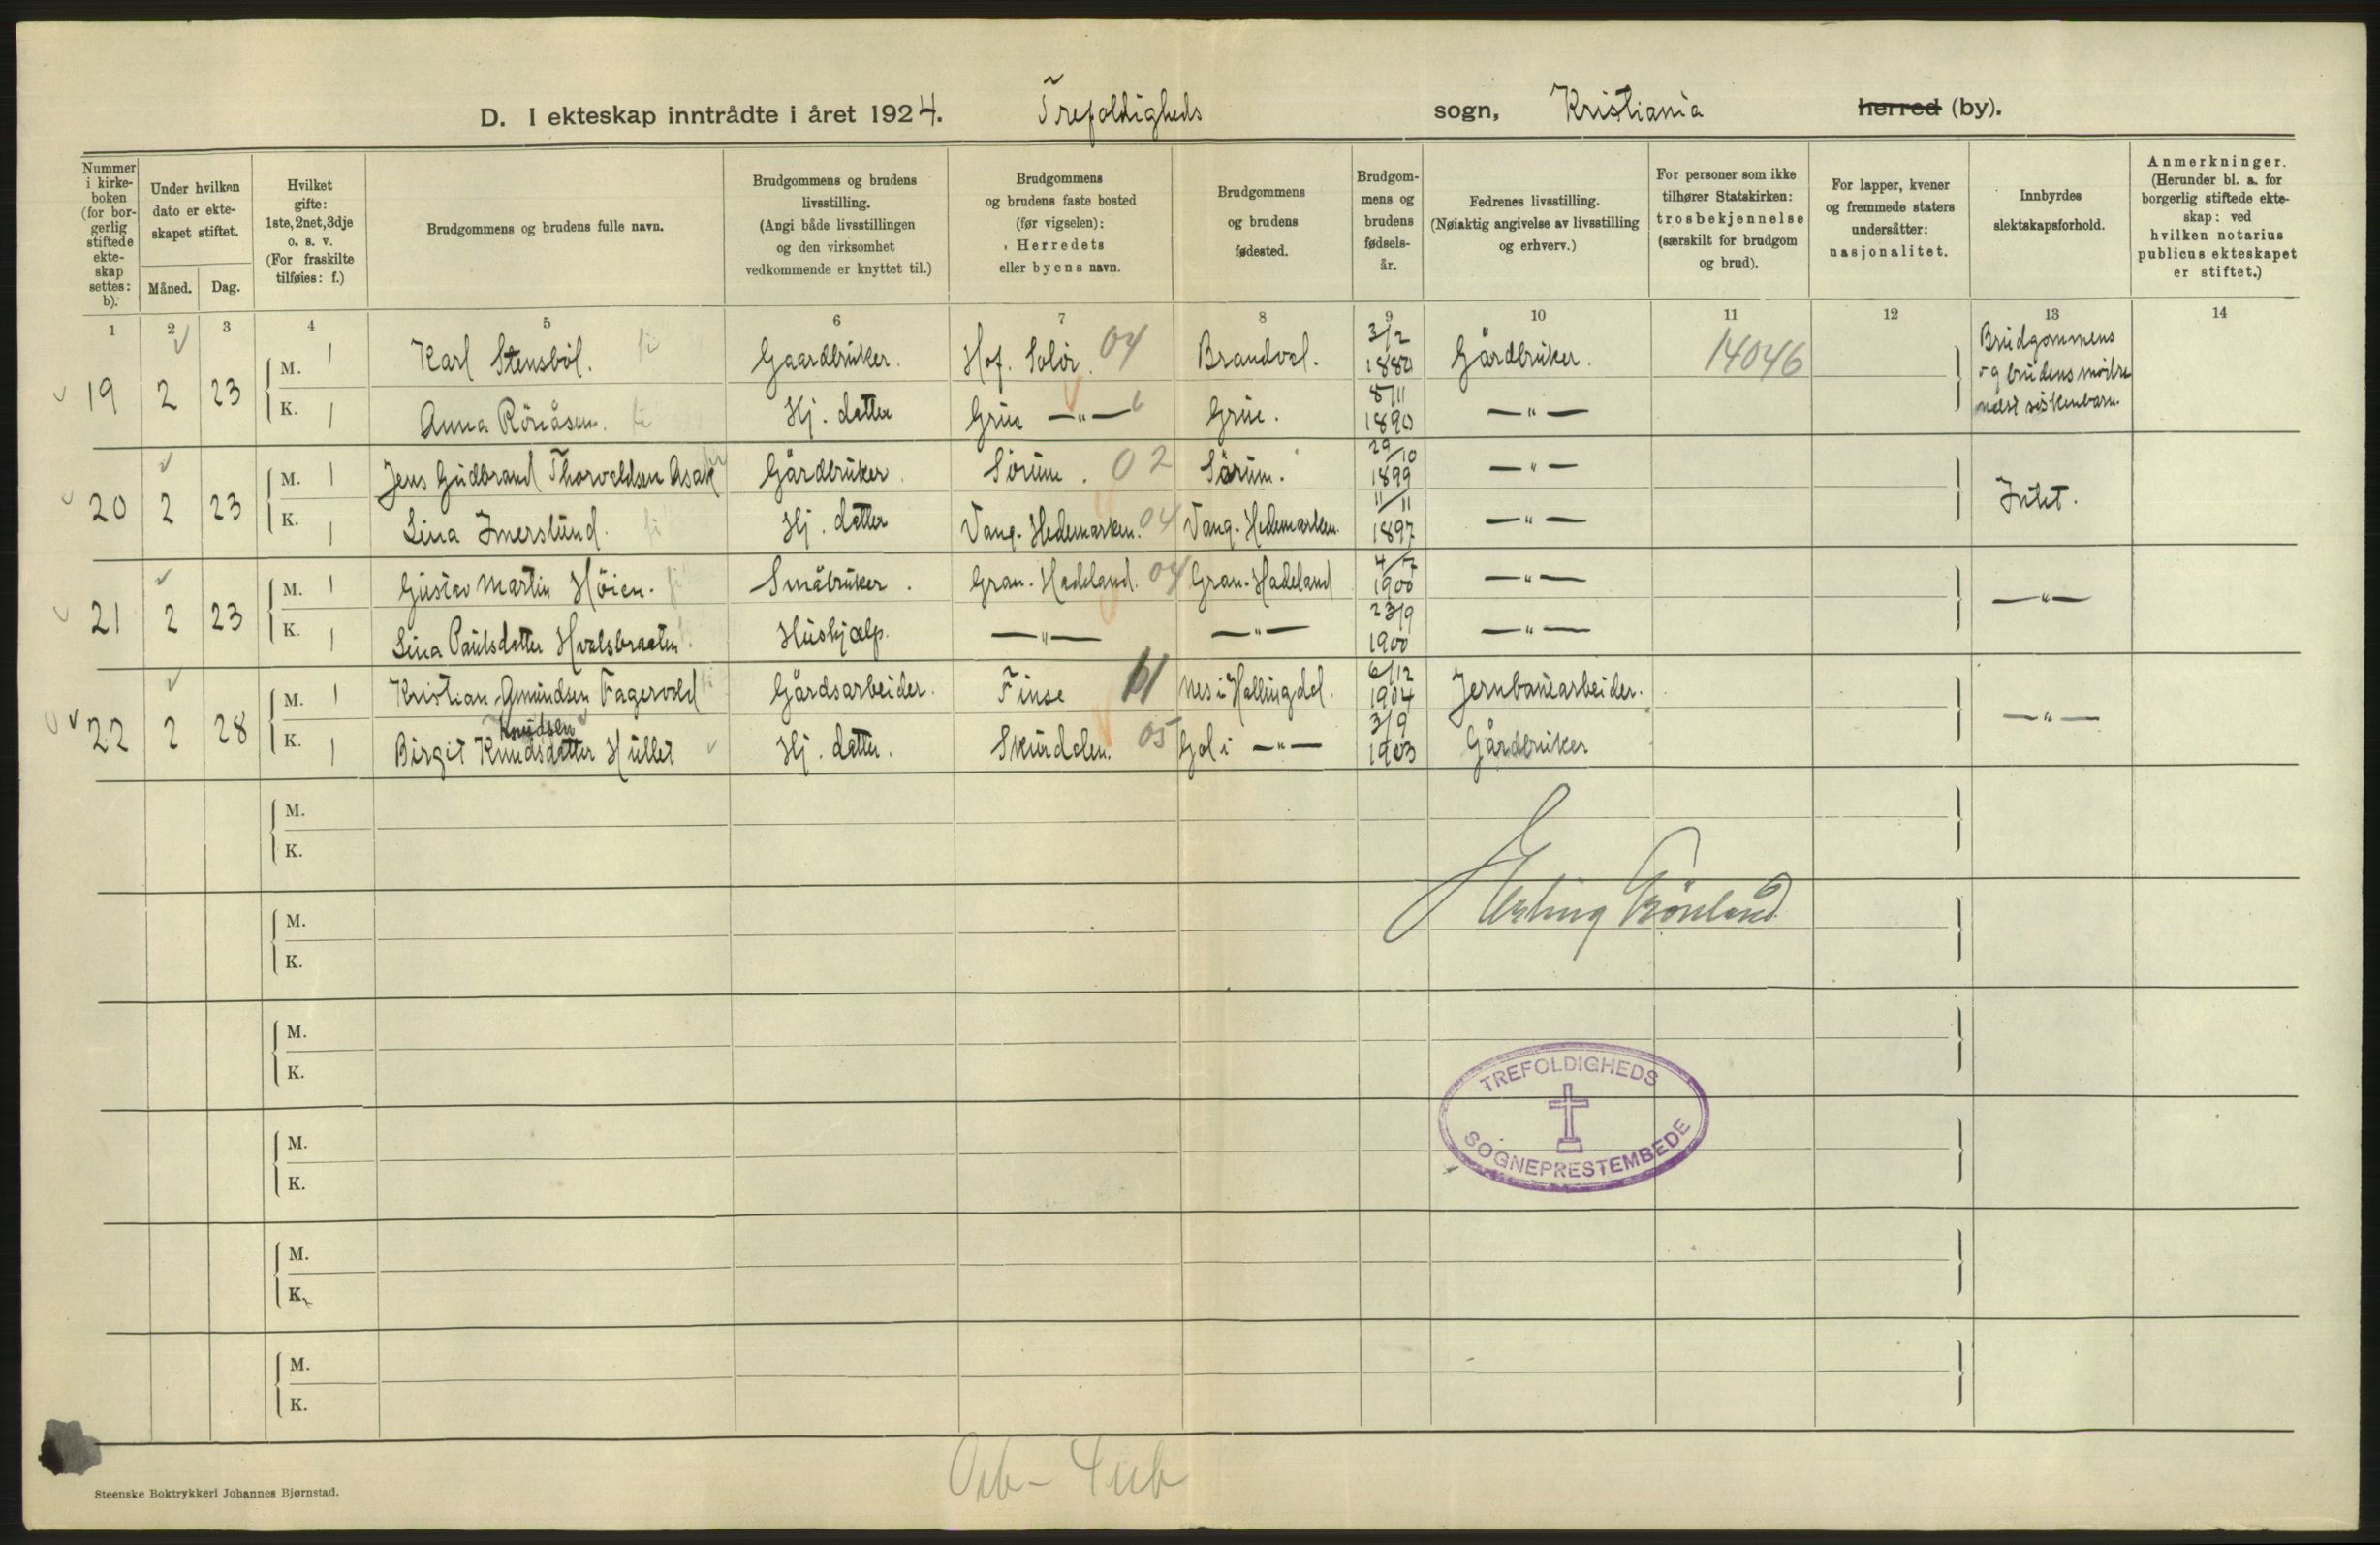 D. I ekteskap inntrådte i året 1924. Trefoldigheds sogn, Kristiania herred (by).
Nummer i kirke-boken (for bor-gerlig stiftede ekte-skap settes: b).
Under hvilken dato er ekte-skapet stiftet.
Måned. Dag.
Hvilket gifte: 1ste, 2net, 3dje o. s. v. (For fraskilte tilføies: f.)
Brudgommens og brudens fulle navn.
Brudgommens og brudens livsstilling. (Angi både livsstillingen og den virksomhet vedkommende er knyttet til.)
Brudgommens og brudens faste bosted (før vigselen): Herredets eller byens navn.
Brudgommens og brudens fødested.
Brudgom-mens og brudens fødsels-år.
Fedrenes livsstilling. (Nøiaktig angivelse av livsstilling og erhverv.)
For personer som ikke tilhører Statskirken: trosbekjennelse (særskilt for brudgom og brud).
For lapper, kvener og fremmede staters undersåtter: nasjonalitet.
Innbyrdes slektskapsforhold.
Anmerkninger. (Herunder bl. a. for borgerlig stiftede ekte-skap: ved hvilken notarius publicus ekteskapet er stiftet.)
1 2 3 4 5 6 7 8 9 10 11 12 13 14
19 2 23 M. 1 Karl Stensböl. Gaardbruker. Hof. Solör. 04 Brandval. 3/2 1880 Gårdbruker. 14046 Brudgommens og brudens mödre næst söskenbarn.
K. 1 Anna Rönåsen. Hj. datter Grue —"— Grue. 8/11 1890 —"—
20 2 23 M. 1 Jens Gudbrand Thorvaldsen Asak Gårdbruker. Sörum. 02 Sörum. 29/10 1899 —"— Intet.
K. 1 Lina Imerslund. Hj. datter Vang. Hedemarken. 04 Vang. Hedemarken. 11/11 1897 —"—
21 2 23 M. 1 Gustav Martin Höien. Småbruker. Gran. Hadeland. 04 Gran. Hadeland 4/7 1900 —"— —"—
K. 1 Lina Paulsdatter Hvalsbraaten. Hushjælp. —"— —"— 23/9 1900 —"—
22 2 28 M. 1 Kristian Gmundsen Fagervold Gårdsarbeider. Finse 11 Nes i Hallingdal. 6/12 1904 Jernbanearbeider. —"—
Knudsen
K. 1 Birgit Knudsdatter Hullet Hj. datter. Skurdalen. 05 Gol i —"— 3/9 1903 Gårdbruker
M.
K.
M.
K.
Erling Grönland
M.
K.
TREFOLDIGHEDS
SOGNEPRESTEMBEDE
M.
K.
M.
K.
M.
K.
Steenske Boktrykkeri Johannes Bjørnstad.